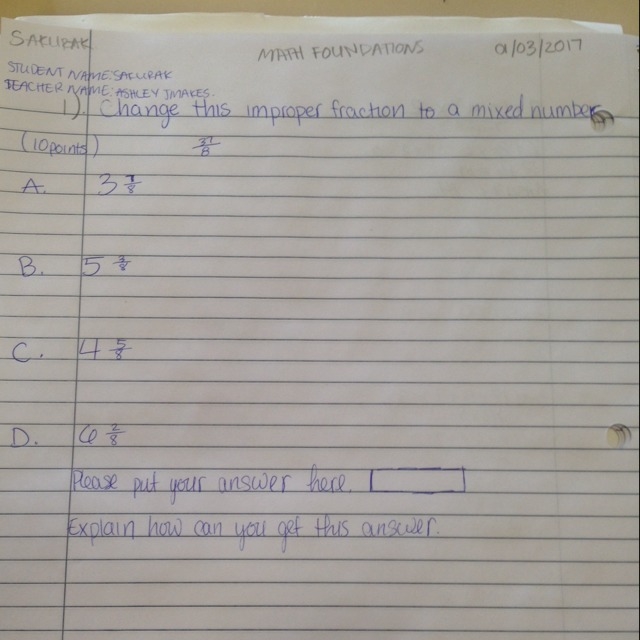 SAKURAK
MATH FOUNDATIONS 01/03/2017
STUDENT NAME: SAKURAK
TEACHER NAME: ASHLEY JMAKES.
1). Change this improper fraction to a mixed number
(10 points) 37/8
A. 3 7/8
B. 5 3/8
C. 4 5/8
D. 6 2/8
Please put your answer here.
Explain how can you get this answer.